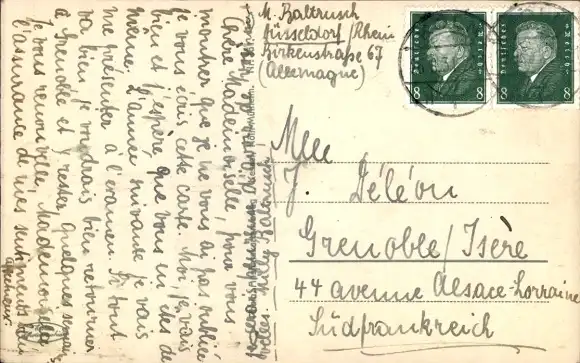 M. Baltrusch
Düsseldorf/Rhein
Birkenstraße 67
(Allemagne)
Deutsches Reich
8 8
Deutsches Reich
8 8
Mlle
J. Déléon
Grenoble/Isère
44 avenue Alsace-Lorraine
Südfrankreich
Chère Mademoiselle, pour vous
montrer que je ne vous ai pas oubliée
je vous écris cette carte. Moi, je vais
bien et j'espère, que vous en êtes de
même. L'année suivante je vais
me présenter à l'examen. Si tout
va bien je voudrais bien retourner
à Grenoble et y rester quelques semai-
Je vous renouvelle, Mademoiselle
l'assurance de mes sentiments